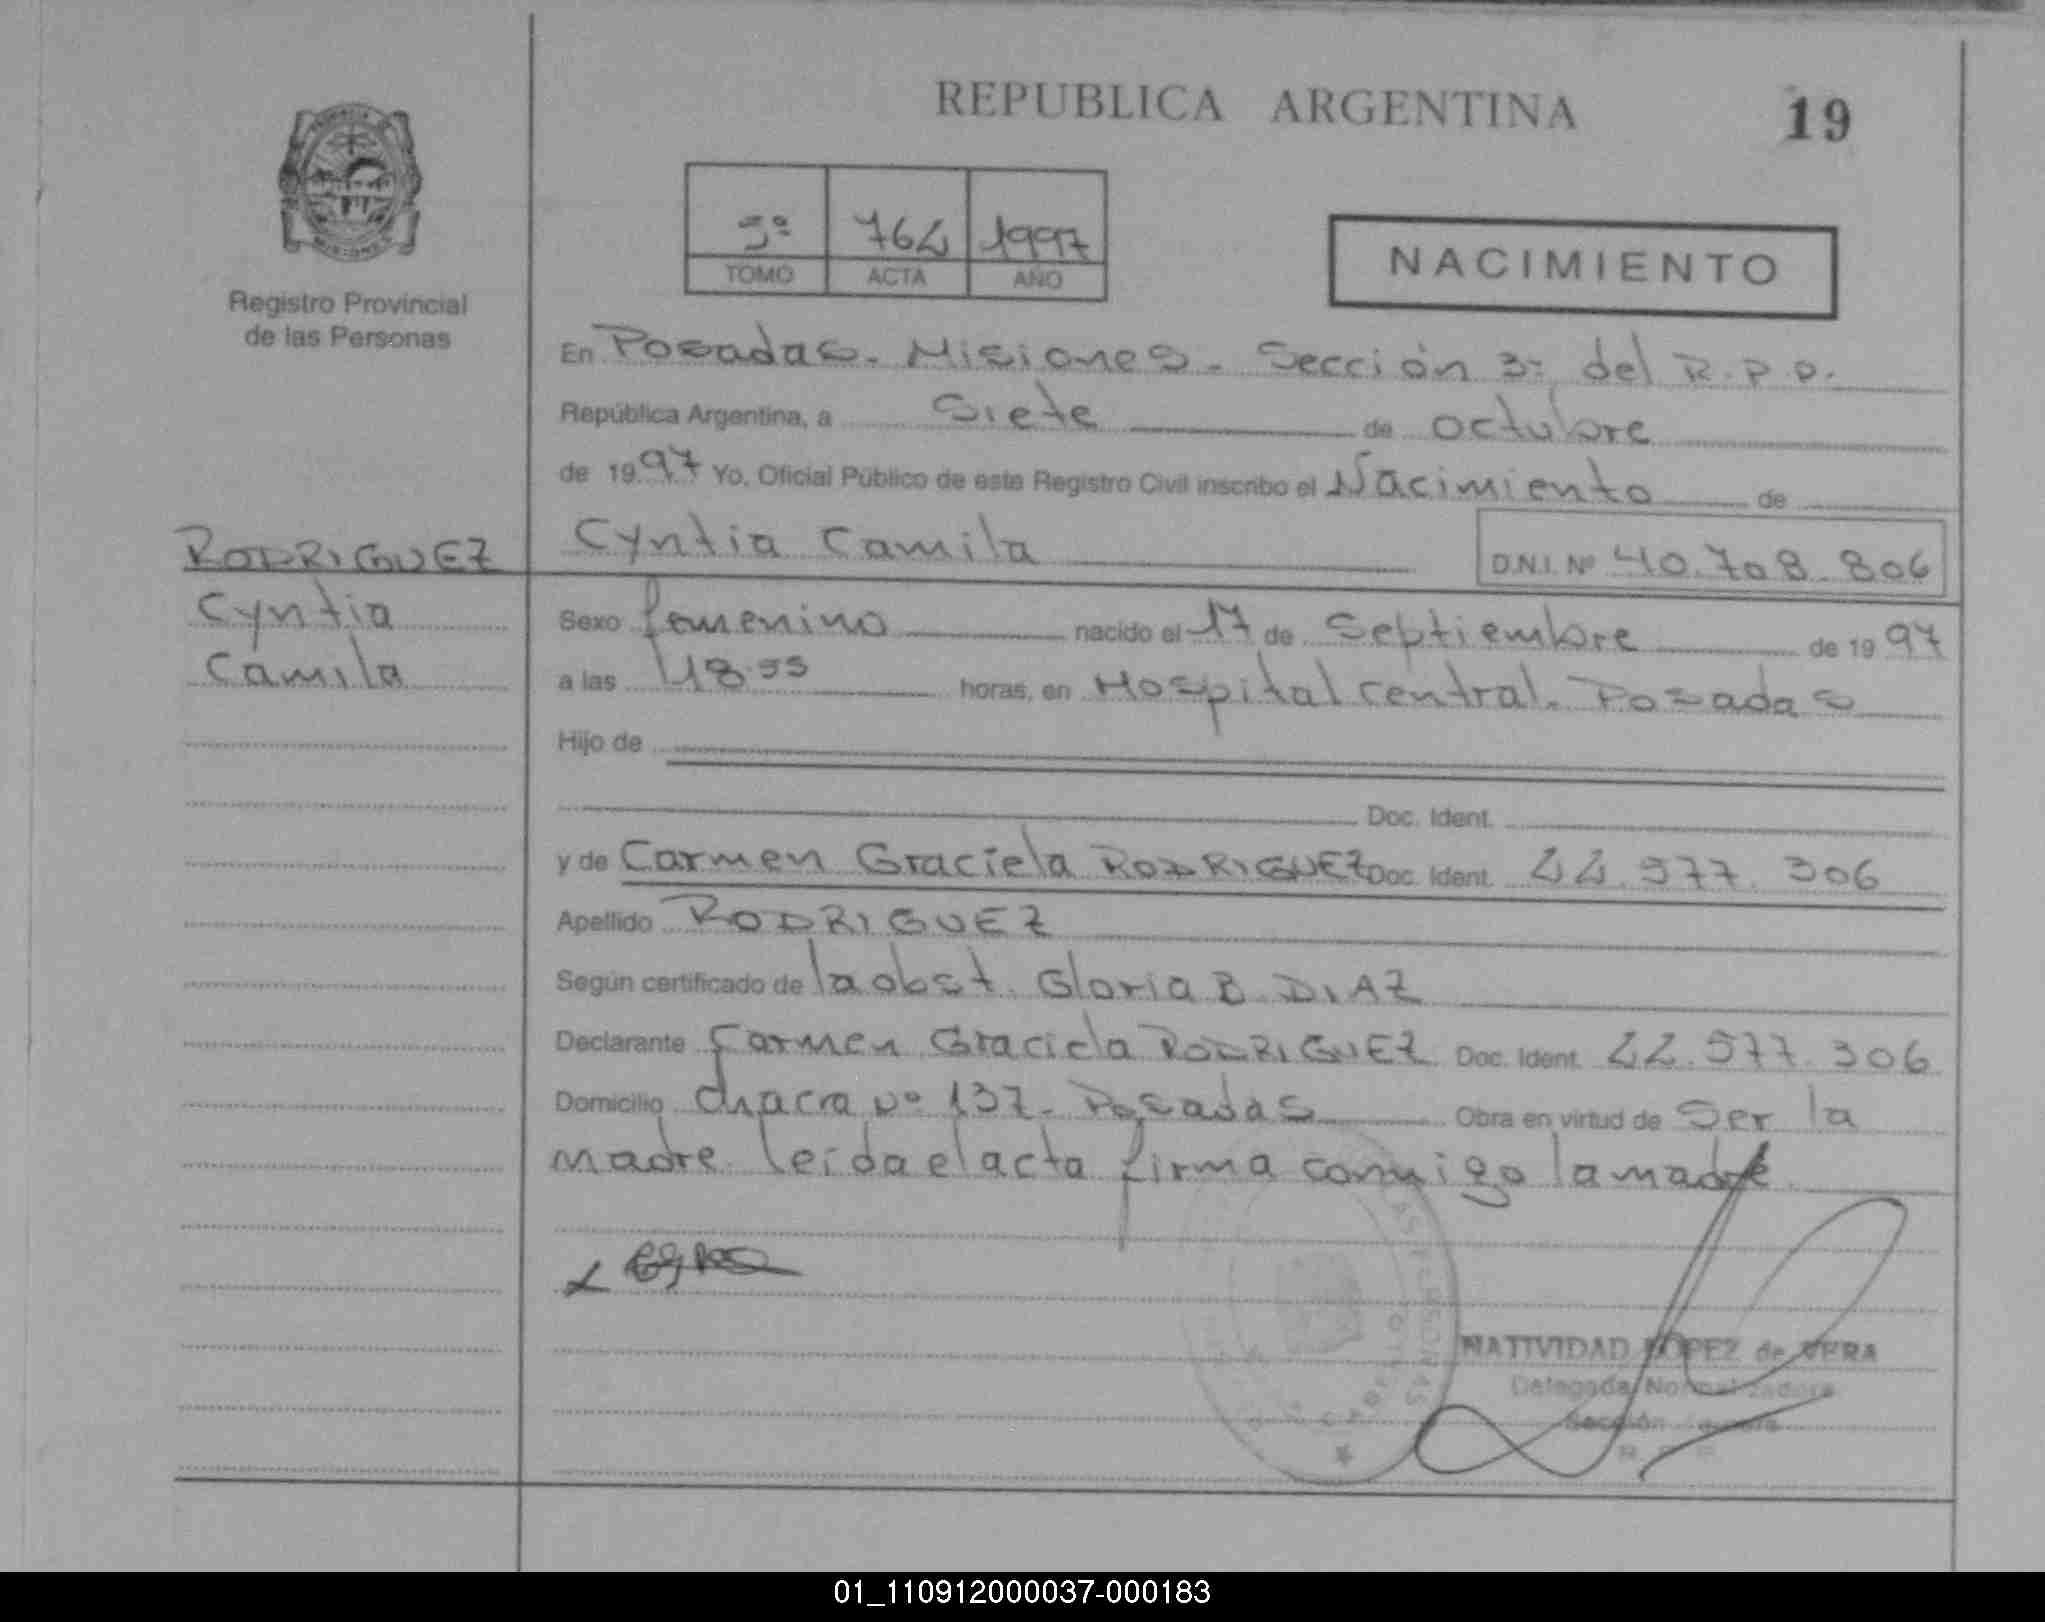 REPUBLICA ARGENTINA
19
5º 764 1997
TOMO ACTA AÑO
NACIMIENTO
Registro Provincial
de las Personas
En Posadas. Misiones. Sección 3ª del R.P.P.
República Argentina, a Siete de octubre
de 1997 Yo, Oficial Público de este Registro Civil inscribo el Nacimiento de
Cyntia Camila D.N.I. Nº 40.708.806
RODRIGUEZ
Cyntia
Camila
Sexo femenino nacido el 17 de Septiembre de 1997
a las 18.55 horas, en Hospital central. Posadas
Hijo de
Doc. Ident.
y de Carmen Graciela RODRIGUEZ Doc. Ident. 22.577.306
Apellido RODRIGUEZ
Según certificado de la obst. Gloria B. DIAZ
Declarante Carmen Graciela RODRIGUEZ Doc. Ident. 22.577.306
Domicilio chacra Nº 137. Posadas Obra en virtud de Ser la
madre. leida el acta firma conmigo la madre.
NATIVIDAD LOPEZ de VERA
Delegada Normalizadora
Sección
01_110912000037-000183